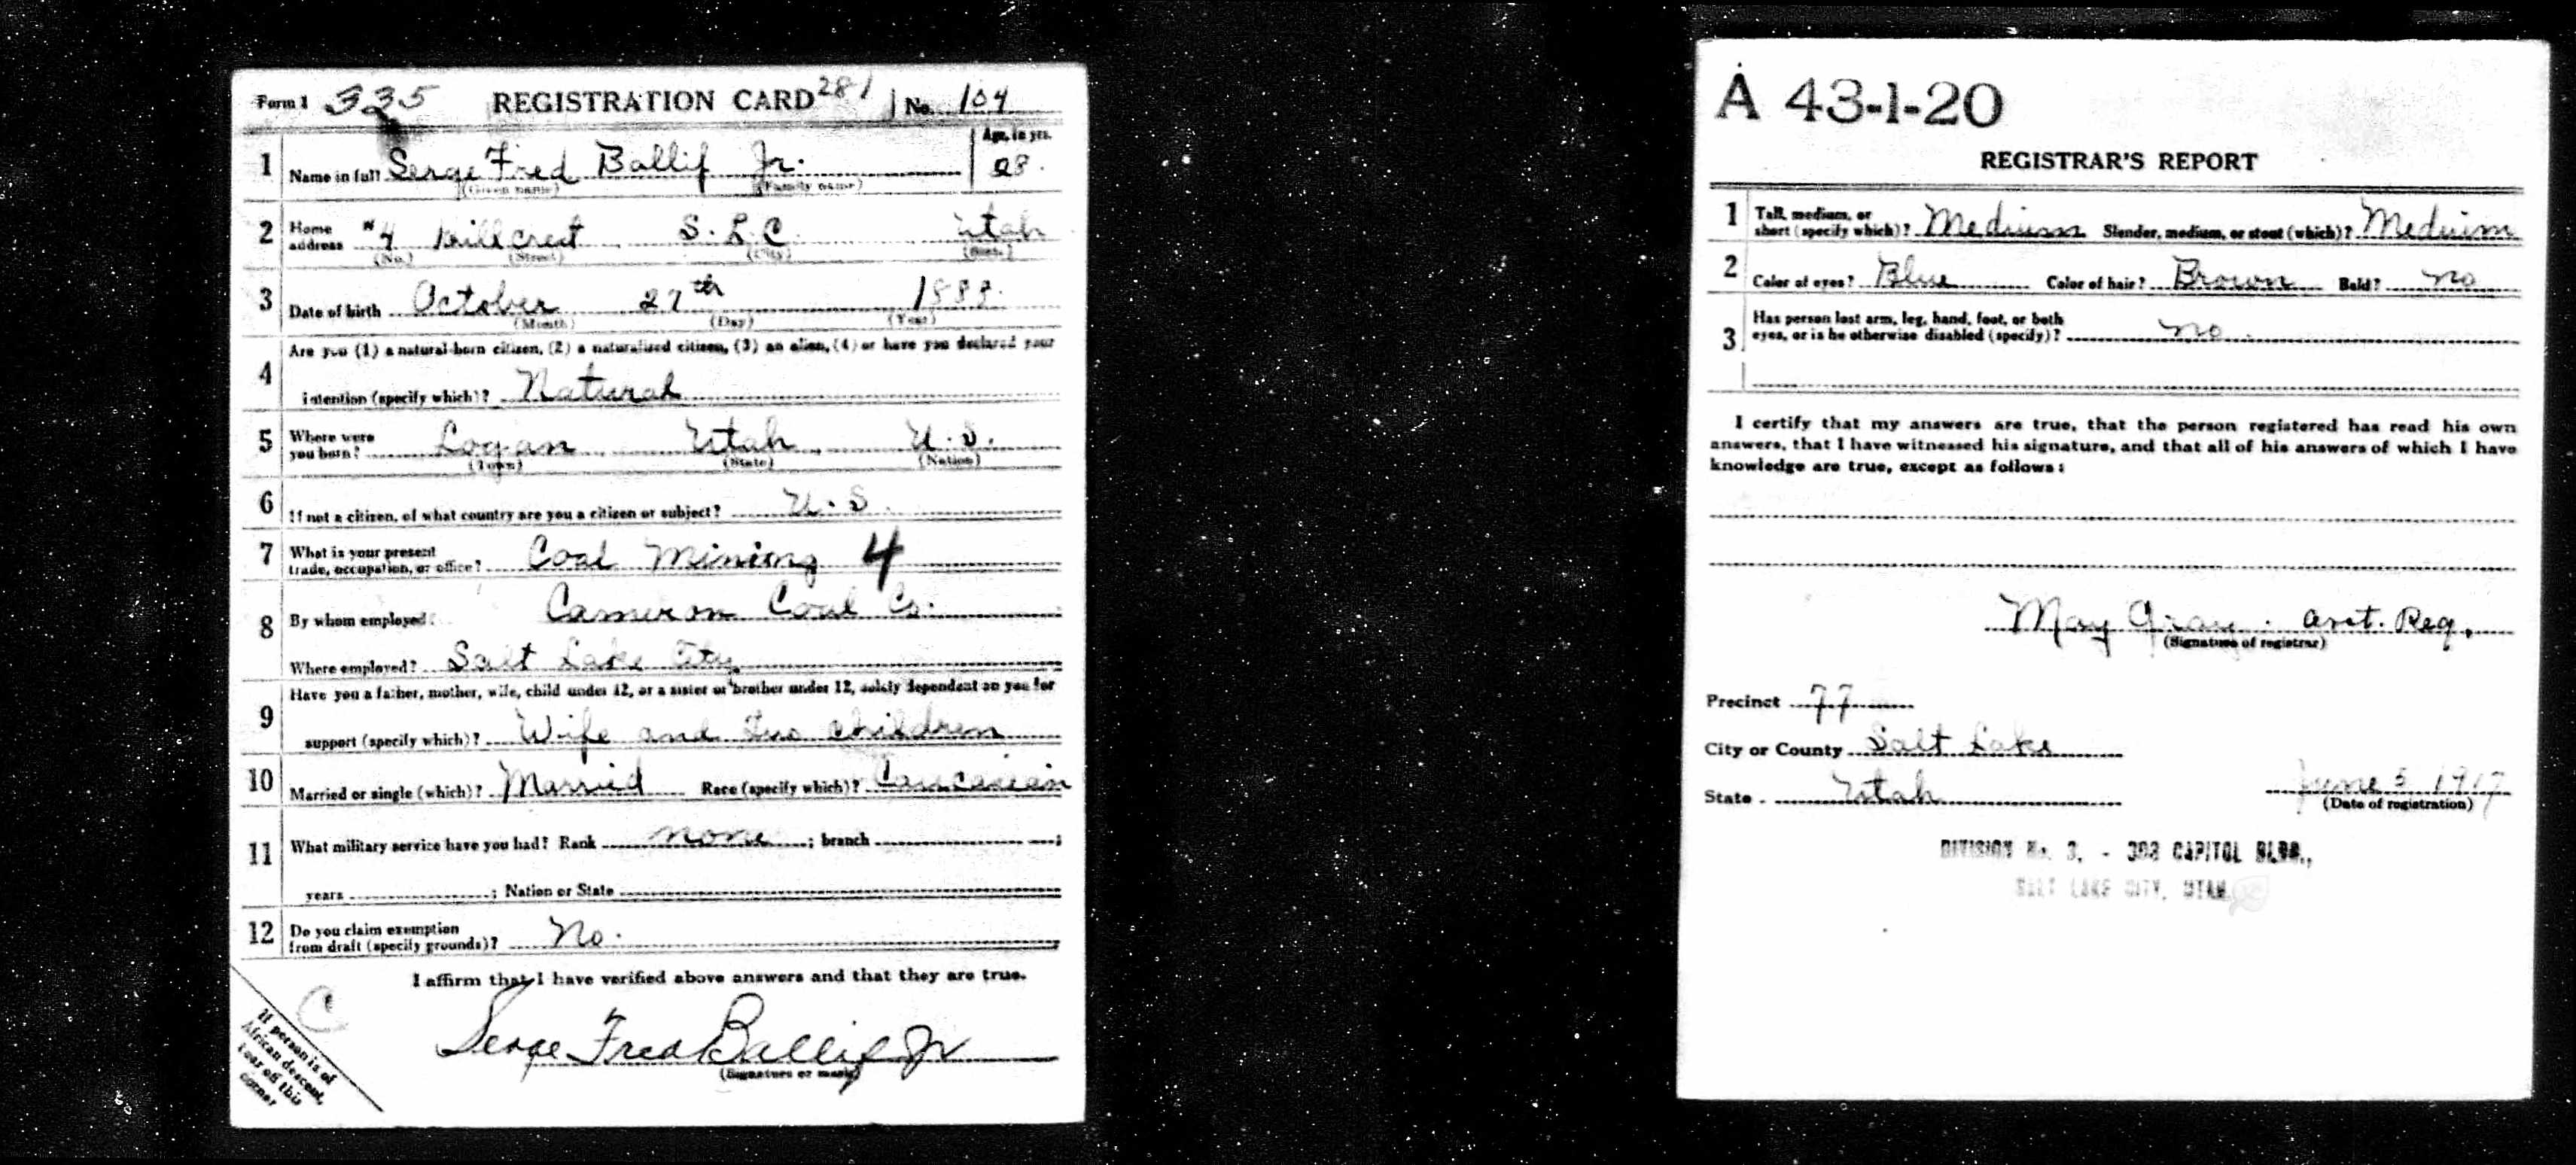 Form 1 335 REGISTRATION CARD 281 No. 104
1 Name in full Serge Fred Ballif Jr. Age, in yrs. 28.
(Given name) (Family name)
2 Home address #4 Hillcrest S.L.C. Utah
(No.) (Street) (City) (State)
3 Date of birth October 27th 1888.
(Month) (Day) (Year)
4 Are you (1) a natural-born citizen, (2) a naturalized citizen, (3) an alien, (4) or have you declared your
intention (specify which)? Natural
5 Where were you born? Logan Utah U.S.
(Town) (State) (Nation)
6 If not a citizen, of what country are you a citizen or subject? U.S.
7 What is your present trade, occupation, or office? Coal Mining 4
8 By whom employed? Cameron Coal Co.
Where employed? Salt Lake City
9 Have you a father, mother, wife, child under 12, or a sister or brother under 12, solely dependent on you for
support (specify which)? Wife and Two children
10 Married or single (which)? Married Race (specify which)? Caucasian
11 What military service have you had? Rank none ; branch ;
years ; Nation or State
12 Do you claim exemption from draft (specify grounds)? No.
I affirm that I have verified above answers and that they are true.
C
Serge Fred Ballif Jr
(Signature or mark)
If person is of
African descent,
tear off this
corner
A 43-1-20
REGISTRAR'S REPORT
1 Tall, medium, or short (specify which)? Medium Slender, medium, or stout (which)? Medium
2 Color of eyes? Blue Color of hair? Brown Bald? No
3 Has person lost arm, leg, hand, foot, or both
eyes, or is he otherwise disabled (specify)? No
I certify that my answers are true, that the person registered has read his own
answers, that I have witnessed his signature, and that all of his answers of which I have
knowledge are true, except as follows:
May Gray. Asst. Reg.
(Signature of registrar)
Precinct 77
City or County Salt Lake
State Utah June 5 1917
(Date of registration)
DIVISION No. 3, - 303 CAPITOL BLDG.,
SALT LAKE CITY, UTAH